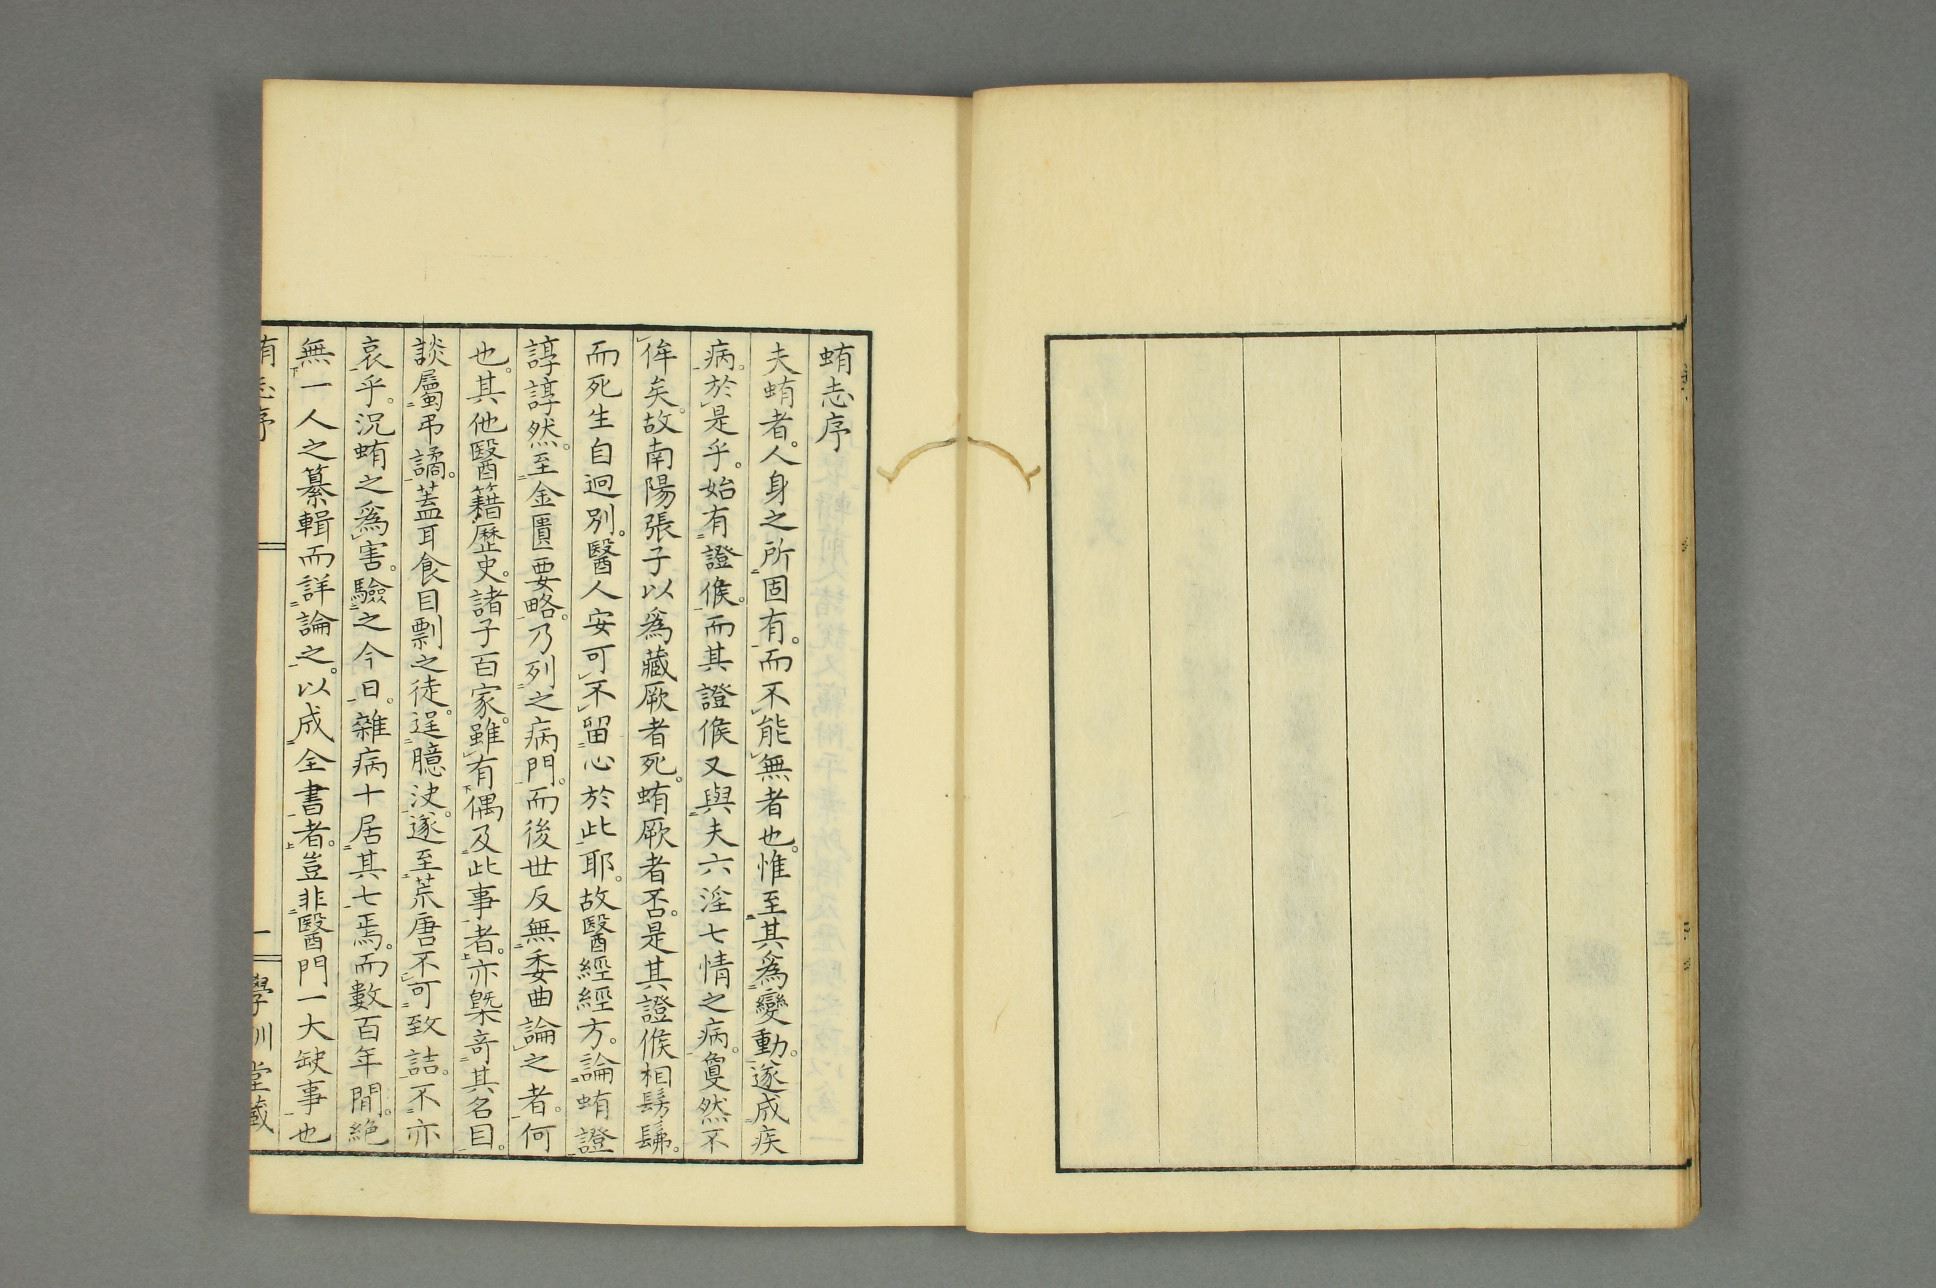 蛕志序
夫蛕者。人身之所固有。而不能無者也。惟至其爲變動。遂成疾
病。於是乎。始有證候。而其證候又與夫六淫七情之病。夐然不
侔矣。故南陽張子以爲藏厥者死。蛕厥者否。是其證候相髣髴。
而死生自迥別。醫人安可不留心於此耶。故醫經經方。論蛕證
諄諄然。至金匱要略。乃列之病門。而後世反無委曲論之者。何
也。其他醫籍歷史。諸子百家。雖有偶及此事者。亦槩奇其名目。
談屬弔譎。蓋耳食目剽之徒。逞臆決。遂至荒唐不可致詰。不亦
哀乎。況蛕之爲害。驗之今日。雜病十居其七焉。而數百年間。絶
無一人之纂輯而詳論之。以成全書者。豈非醫門一大缺事也
蛕志序 一 學訓堂藏